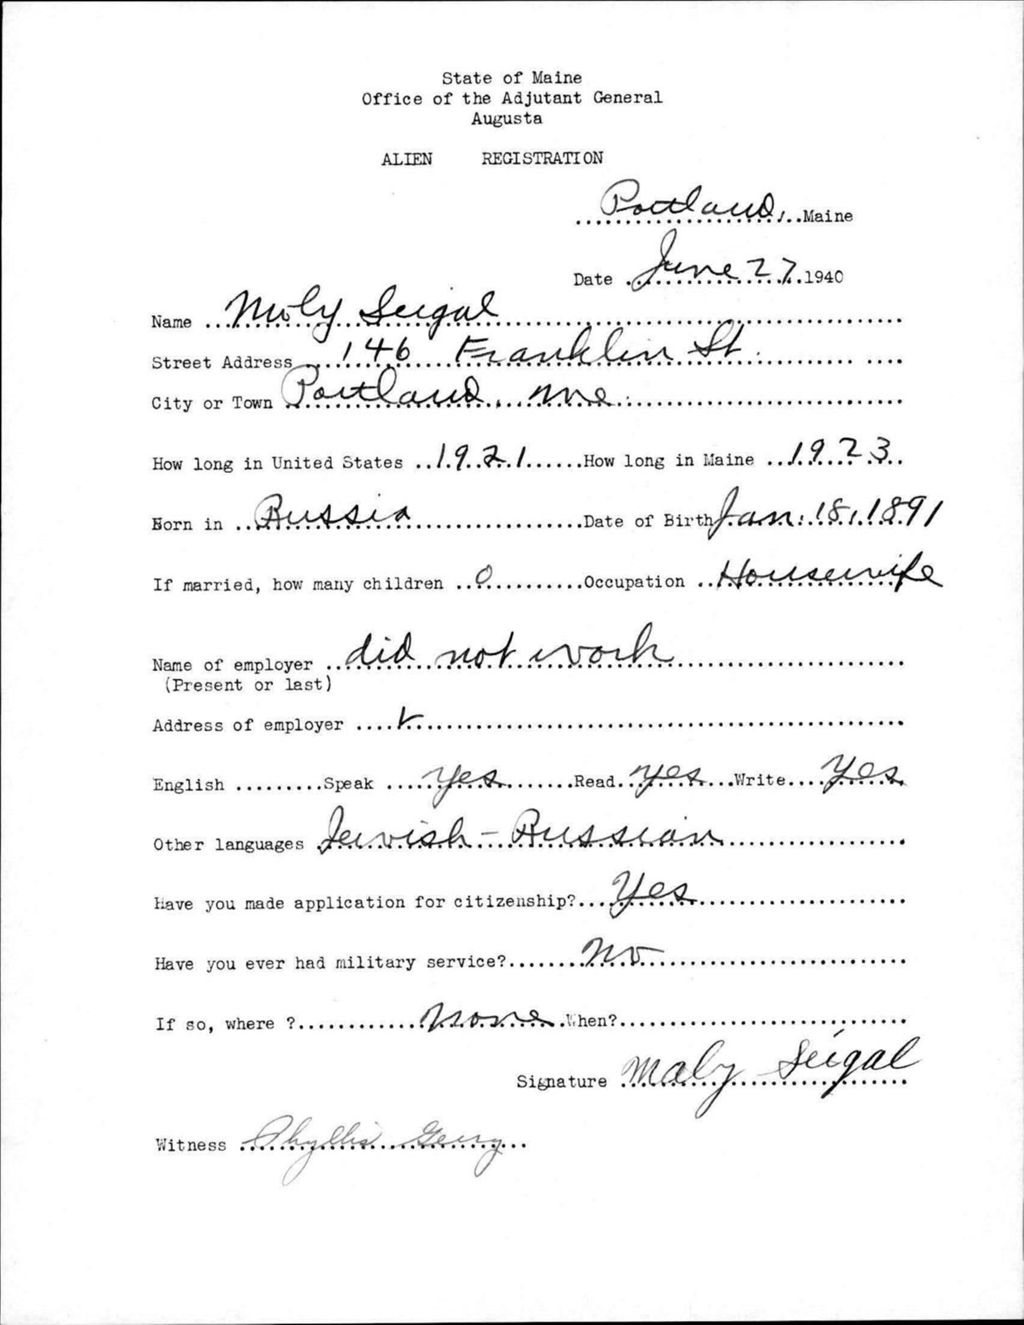 State of Maine
Office of the Adjutant General
Augusta
ALIEN REGISTRATION
Portland, Maine
Date June 27 1940
Name Moly Seigal
Street Address 146 Franklin St.
City or Town Portland, Me.
How long in United States 1921 How long in Maine 1923
Born in Russia Date of Birth Jan. 18, 1891
If married, how many children 0 Occupation Housewife
Name of employer did not work
(Present or last)
Address of employer
English Speak Yes Read Yes Write Yes
Other languages Jewish - Russian
Have you made application for citizenship? Yes
Have you ever had military service? No
If so, where ? None When?
Signature Maly Seigal
Witness Phyllis Gerry